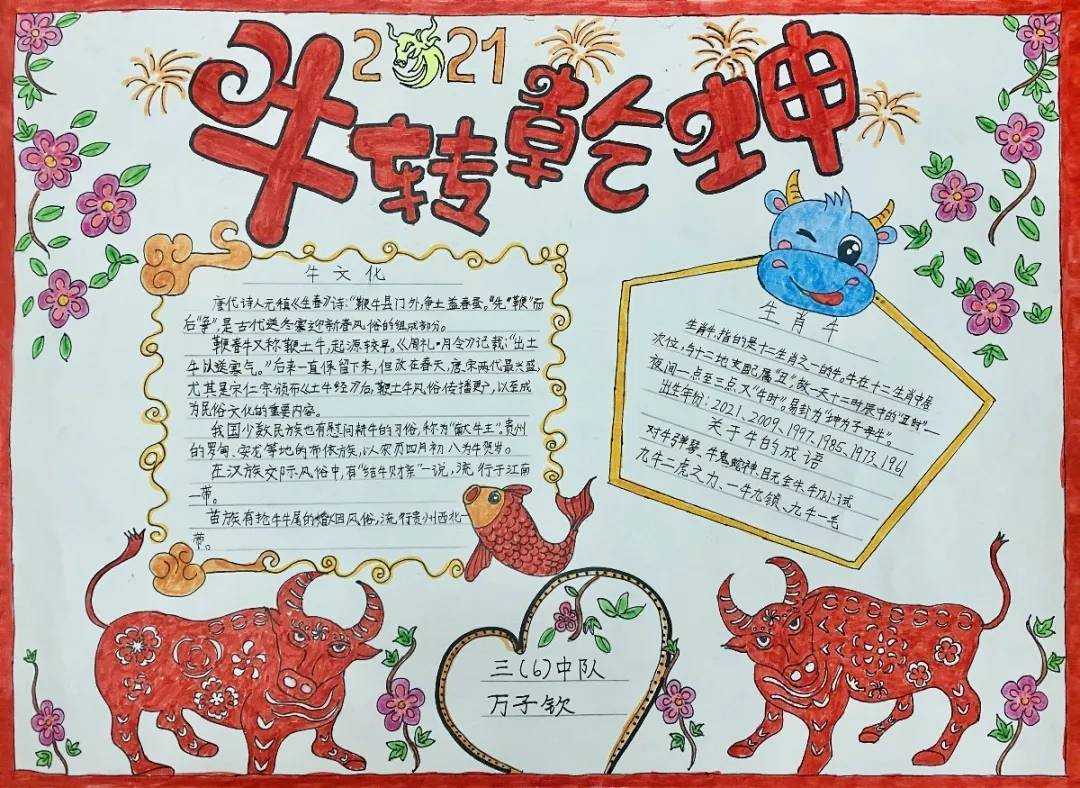 2021
牛转乾坤
牛文化
唐代诗人元稹《生春》诗:“鞭牛县门外,争土盖春蚕。”先“鞭”而
后“争”,是古代送冬寒迎新春风俗的组成部分。
鞭春牛又称鞭土牛,起源较早。《周礼·月令》记载:“出土
牛以送寒气。”后来一直保留下来,但改在春天,唐、宋两代最兴盛,
尤其是宋仁宗颁布《土牛经》后,鞭土牛风俗传播更广,以至成
为民俗文化的重要内容。
我国少数民族也有慰问耕牛的习俗,称为“献牛王”。贵州
的罗甸、安龙等地的布依族,以农历四月初八为牛贺岁。
在汉族交际风俗中,有“结牛财亲”一说,流行于江南
一带。
苗族有抢牛尾的婚姻风俗,流行贵州西北一
带。
生肖牛
生肖牛,指的是十二生肖之一的牛。牛在十二生肖中居
次位,与十二地支配属“丑”,故一天十二时辰中的“丑时”—
夜间一点至三点,又“牛时”。易卦为“坤为子母牛”。
出生年份:2021、2009、1997、1985、1973、1961
关于牛的成语
对牛弹琴、牛鬼蛇神、目无全牛、牛刀小试
九牛二虎之力、一牛九锁、九牛一毛
三(6)中队
万子钦